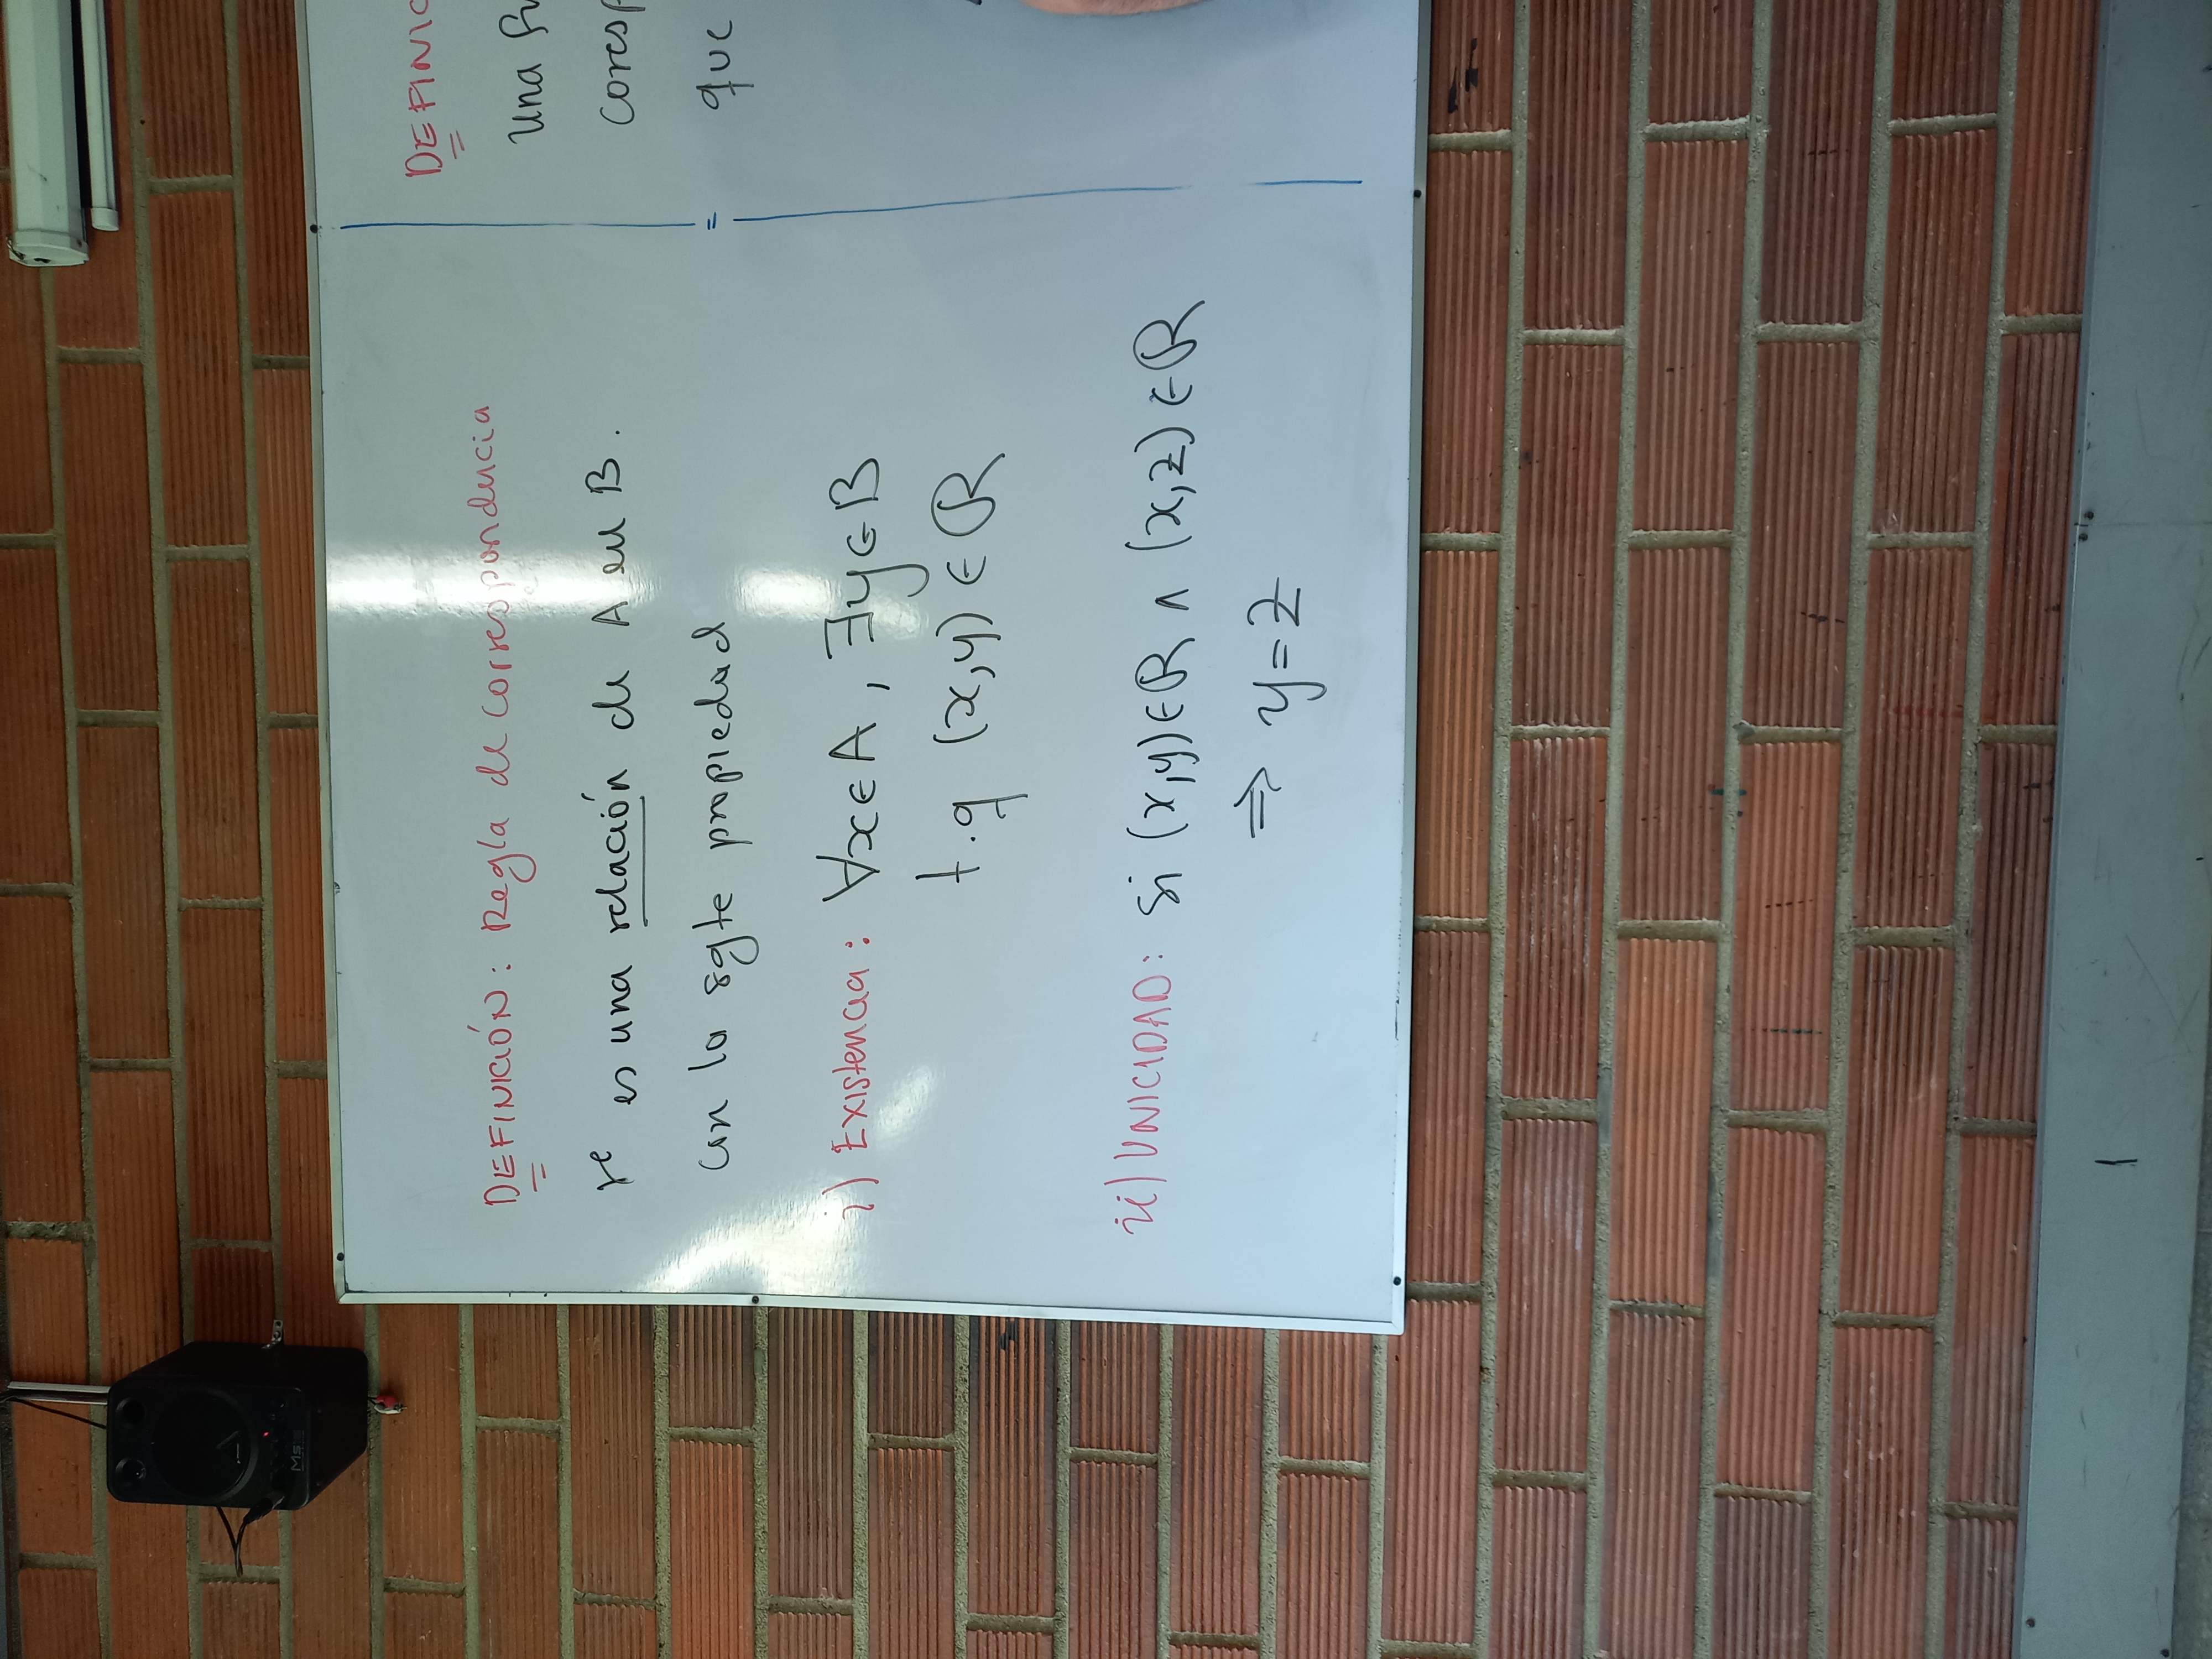 DEFINICIÓN: Regla de correspondencia
rc es una relación de A en B.
con la sgte propiedad
i) Existencia: ∀x∈A, ∃y∈B
t.q (x,y) ∈ R
ii) UNICIDAD: si (x,y)∈R ∧ (x,z)∈R
⇒ y=z
DEFINIC
Una fu
coresp
que